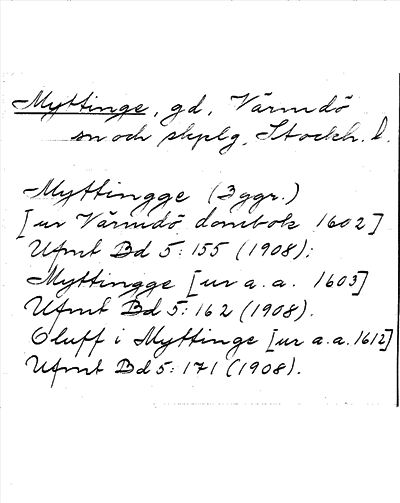 Myttinge, gd, Värmdö
sn och skplg, Stockh. l.
Myttingge (3 ggr.)
[ur Värmdö dombok 1602]
Ufmt Bd 5: 155 (1908);
Myttingge [ur a.a. 1603]
Ufmt Bd 5: 162 (1908).
Oluff i Myttinge [ur a.a. 1612]
Ufmt Bd 5: 171 (1908).